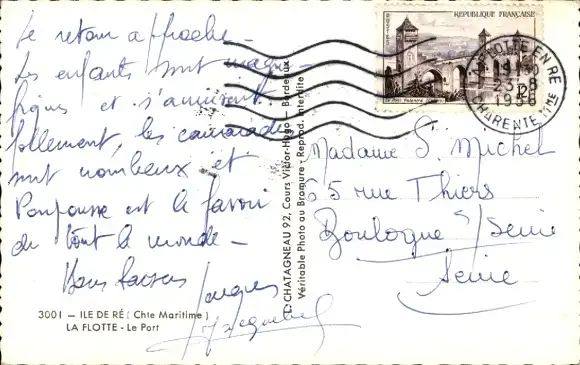 Le retour approche -
Les enfants sont magni-
fiques et s'amusent
follement, les camarades
sont nombreux et
Poupousse est le favori
de tout le monde -
Bons baisers
Jacques
3001 - ILE DE RÉ (Chte Maritime)
LA FLOTTE - Le Port
CHATAGNEAU 92, Cours Victor-Hugo - Bordeaux
Véritable Photo au Bromure - Reprod. interdite
REPUBLIQUE FRANÇAISE
POSTES
12F
LA FLOTTE EN RE
23-8
1956
CHARENTE-MME
Madame S. Michel
65 rue Thiers
Boulogne s/Seine
Seine